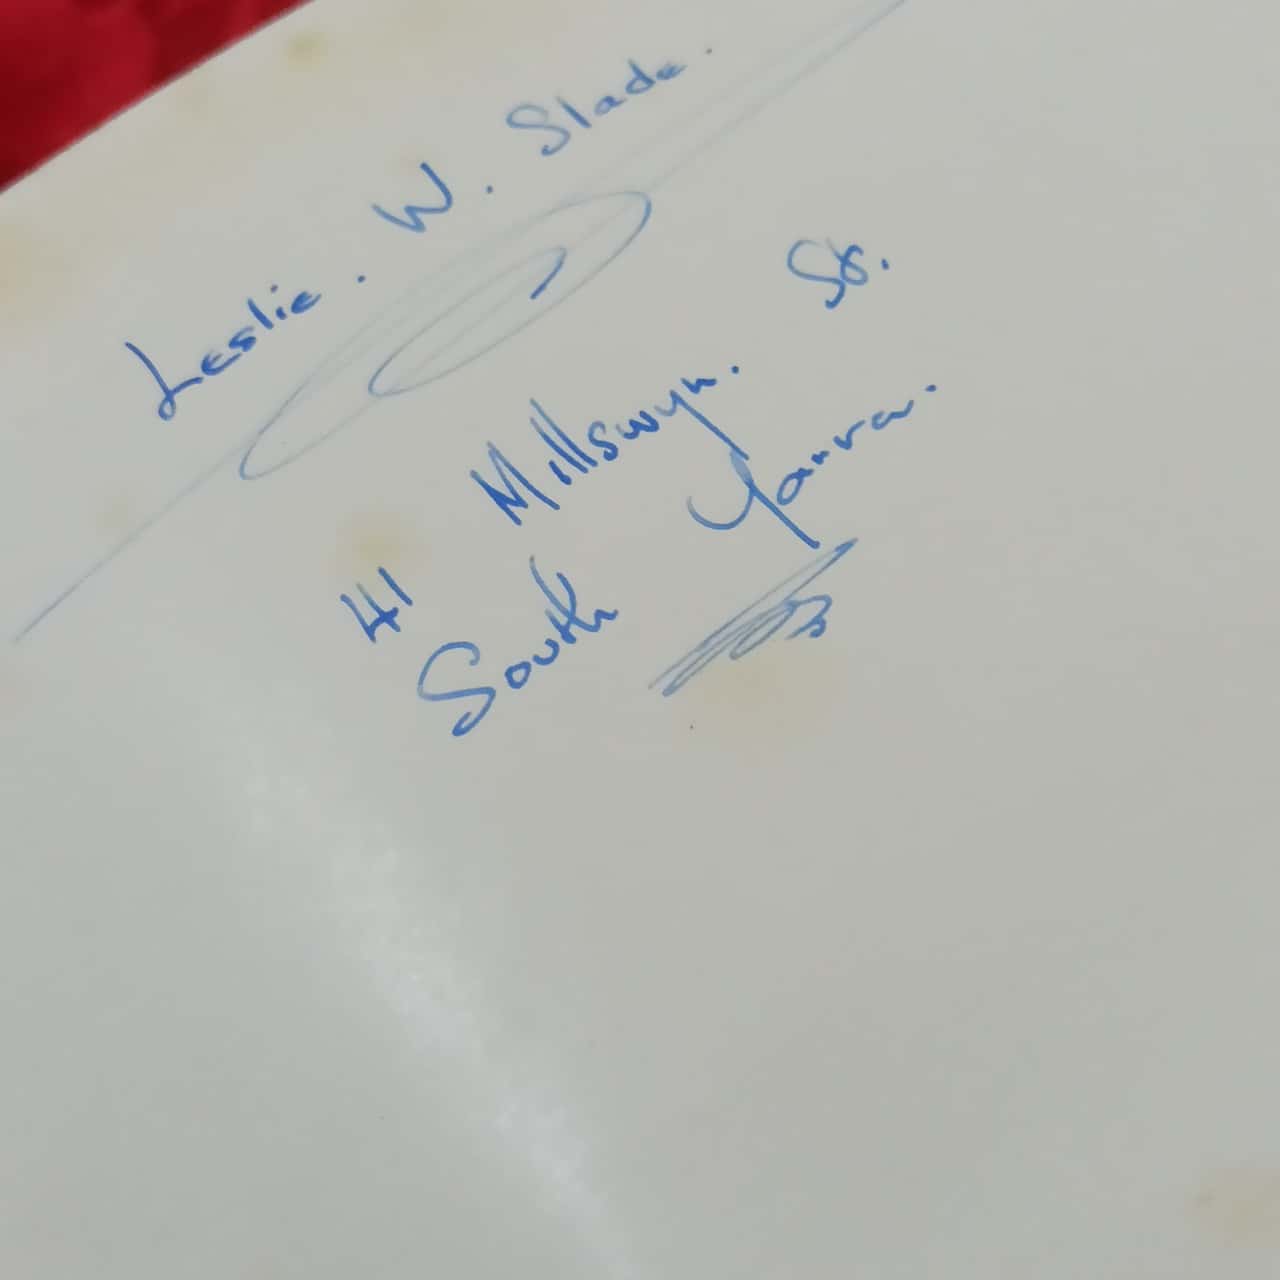 Leslie. W. Slade.
41 Millswyn. St.
South Yarra.